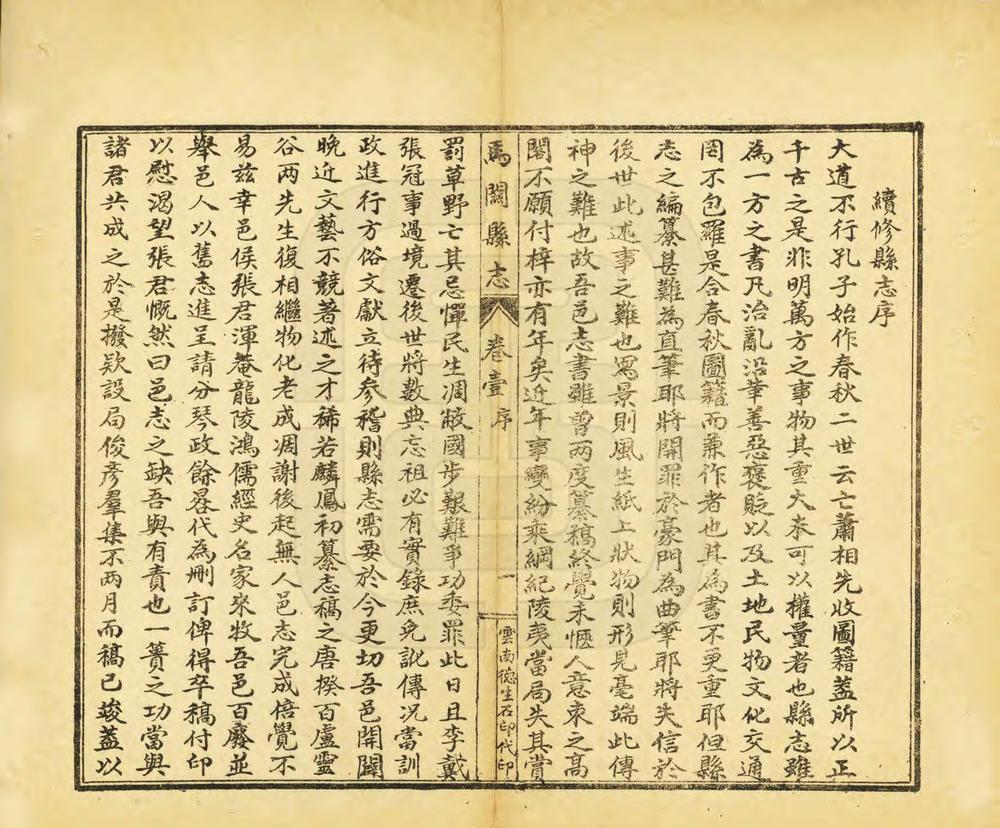 續修縣志序
大道不行孔子始作春秋二世云亡蕭相先收圖籍蓋所以正
千古之是非明萬方之事物其重大未可以權量者也縣志雖
為一方之書凡治亂沿革善惡褒貶以及土地民物文化交通
罔不包羅是合春秋圖籍而兼作者也其為書不更重耶但縣
志之編纂甚難為直筆耶將開罪於豪門為曲筆耶將失信於
後世此述事之難也寫景則風生紙上狀物則形見毫端此傳
神之難也故吾邑志書雖曾兩度纂稿終覺未愜人意束之高
閣不願付梓亦有年矣近年事變紛乘綱紀陵夷當局失其賞
馬關縣志 卷壹 序 一 雲南德生石印代印
罰草野亡其忌憚民生凋敝國步艱難爭功委罪此日且李戴
張冠事過境遷後世將數典忘祖必有實錄庶免訛傳況當訓
政進行方俗文獻立待參稽則縣志需要於今更切吾邑開闢
晚近文藝不競著述之才稀若麟鳳初纂志稿之唐揆百盧靈
谷兩先生復相繼物化老成凋謝後起無人邑志完成倍覺不
易茲幸邑侯張君渾菴龍陵鴻儒經史名家來牧吾邑百廢並
舉邑人以舊志進呈請分琴政餘晷代為刪訂俾得卒稿付印
以慰渴望張君慨然曰邑志之缺吾與有責也一簣之功當與
諸君共成之於是撥欵設局俊彥羣集不兩月而稿已竣蓋以